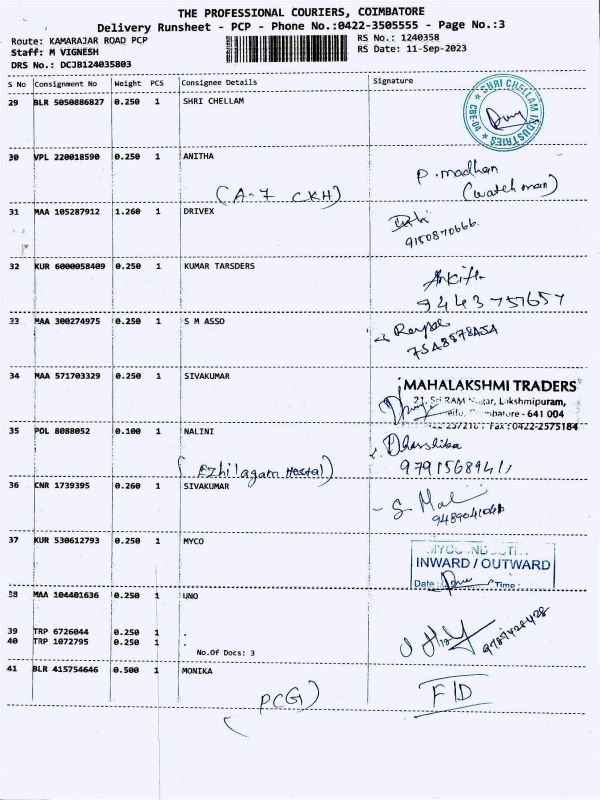 THE PROFESSIONAL COURIERS, COIMBATORE
Delivery Runsheet - PCP - Phone No.:0422-3505555 - Page No.:3
Route: KAMARAJAR ROAD PCP
RS No.: 1240358
Staff: M VIGNESH
RS Date: 11-Sep-2023
DRS No.: DCJB124035803
S No Consignment No Weight PCS Consignee Details Signature
29 BLR 5050886827 0.250 1 SHRI CHELLAM
SHRI CHELLAM INDUSTRIES
30 VPL 220018590 0.250 1 ANITHA
P. madhan
(watch man)
(A-7 CKH)
31 MAA 105287912 1.260 1 DRIVEX
9150870666
32 KUR 6000058409 0.250 1 KUMAR TARSDERS
Ankita
9443757657
33 MAA 300274975 0.250 1 S M ASSO
34 MAA 571703329 0.250 1 SIVAKUMAR
MAHALAKSHMI TRADERS
21, Sri RAM Nagar, Lakshmipuram,
641 004
Fax : 0422-2575184
35 POL 8088052 0.100 1 NALINI
Dharshika
(Ezhilagam Hostal)
36 CNR 1739395 0.260 1 SIVAKUMAR
37 KUR 530612793 0.250 1 MYCO
INWARD / OUTWARD
Date : Time :
38 MAA 104401636 0.250 1 UNO
39 TRP 6726044 0.250 1 .
40 TRP 1072795 0.250 1 .
No.Of Docs: 3
41 BLR 415754646 0.500 1 MONIKA
(PCG)
F/D